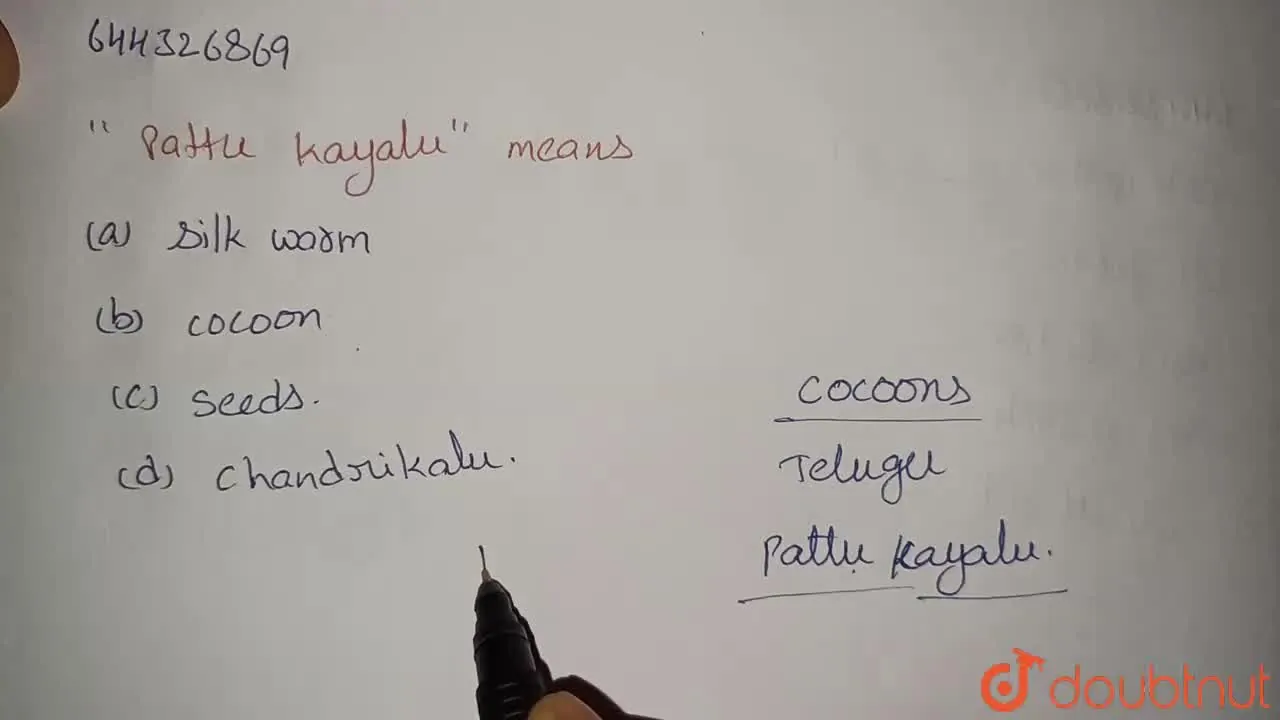 644326869
"Pattu kayalu" means
(a) silk worm
(b) cocoon
(c) seeds.
(d) chandrikalu.
cocoons
Telugu
Pattu kayalu.
doubtnut